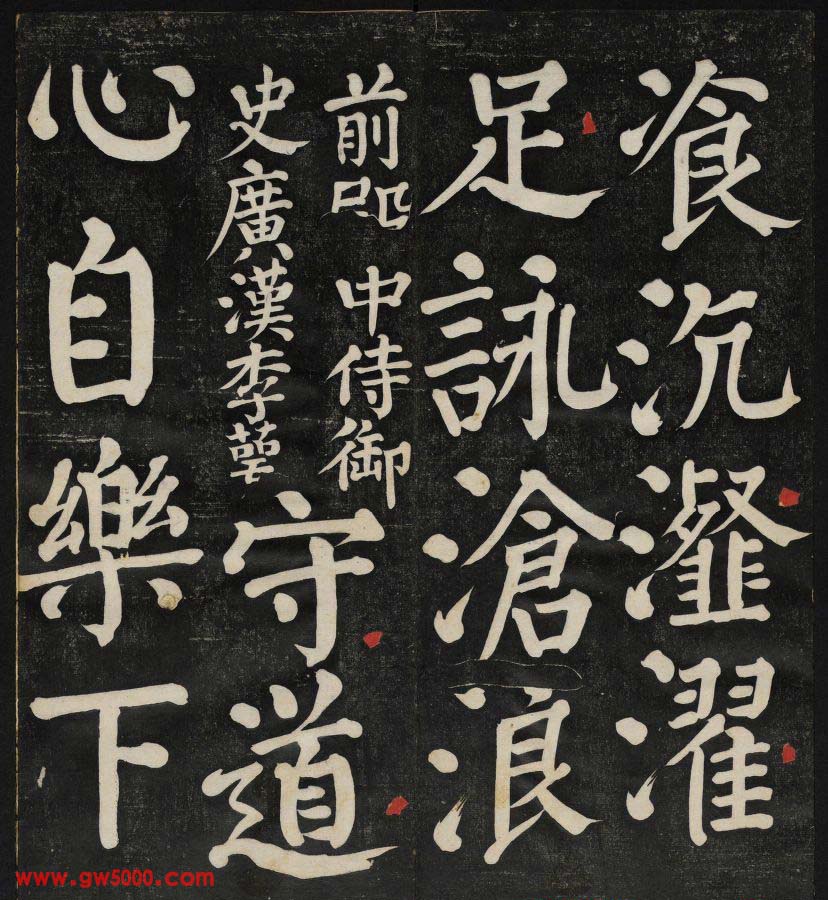 飡沆瀣濯
足詠滄浪
前中侍御
史廣漢李萼
守道
心自樂下
www.gw5000.com